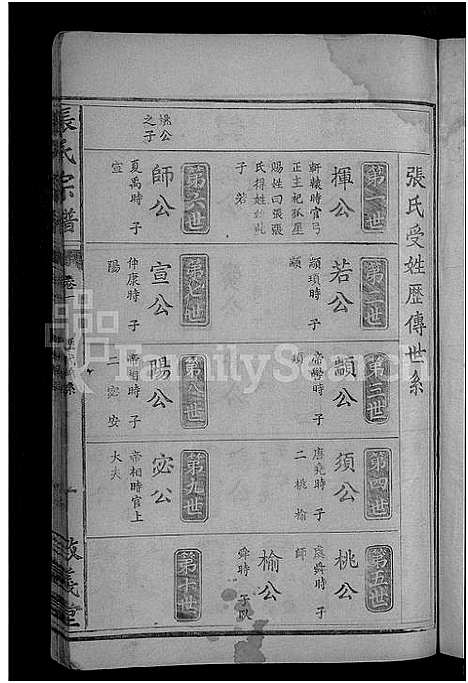 張氏受姓歷傳世系
第一世
揮公
軒轅時官弓
正主祀弧星
賜姓曰張張
氏得姓始此
子若
第二世
若公
顓頊時 子
顓
第三世
顓公
帝嚳時 子
須
第四世
須公
唐堯時 子
二 桃 榆
第五世
桃公
虞舜時 子
師
榆公
舜時 子
桃公
之子
第六世
師公
夏禹時 子
宣
第七世
宣公
仲康時 子
陽
第八世
陽公
帝相時 子
二 宓 安
第九世
宓公
帝相時官上
大夫
第十世
張氏宗譜
卷一
一
敦義堂
FamilySearch